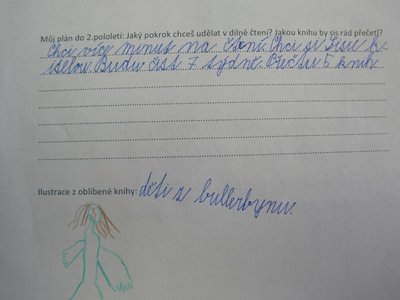 Můj plán do 2.pololetí: Jaký pokrok chceš udělat v dílně čtení? Jakou knihu by sis rád přečetl?
Chci více minut na čtení. Chci si
Budu číst 7 týdně. Přečtu 5 knih
Ilustrace z oblíbené knihy: děti z bullerbynu.